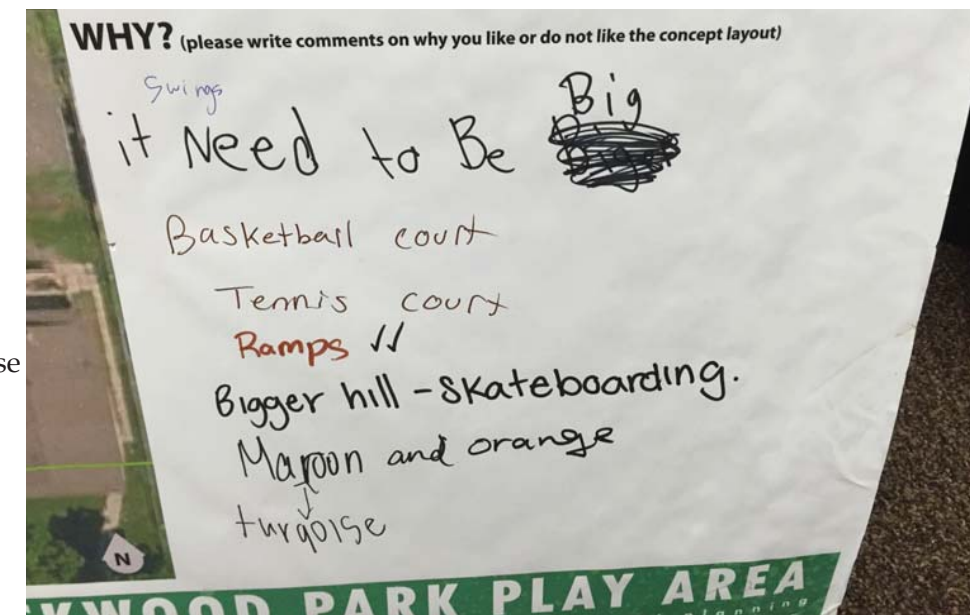 WHY? (please write comments on why you like or do not like the concept layout)
Swings
it Need to Be Big
Basketball court
Tennis court
Ramps ✓✓
se
Bigger hill - skateboarding.
Maroon and orange
↓
turqoise
N
KWOOD PARK PLAY AREA
planning